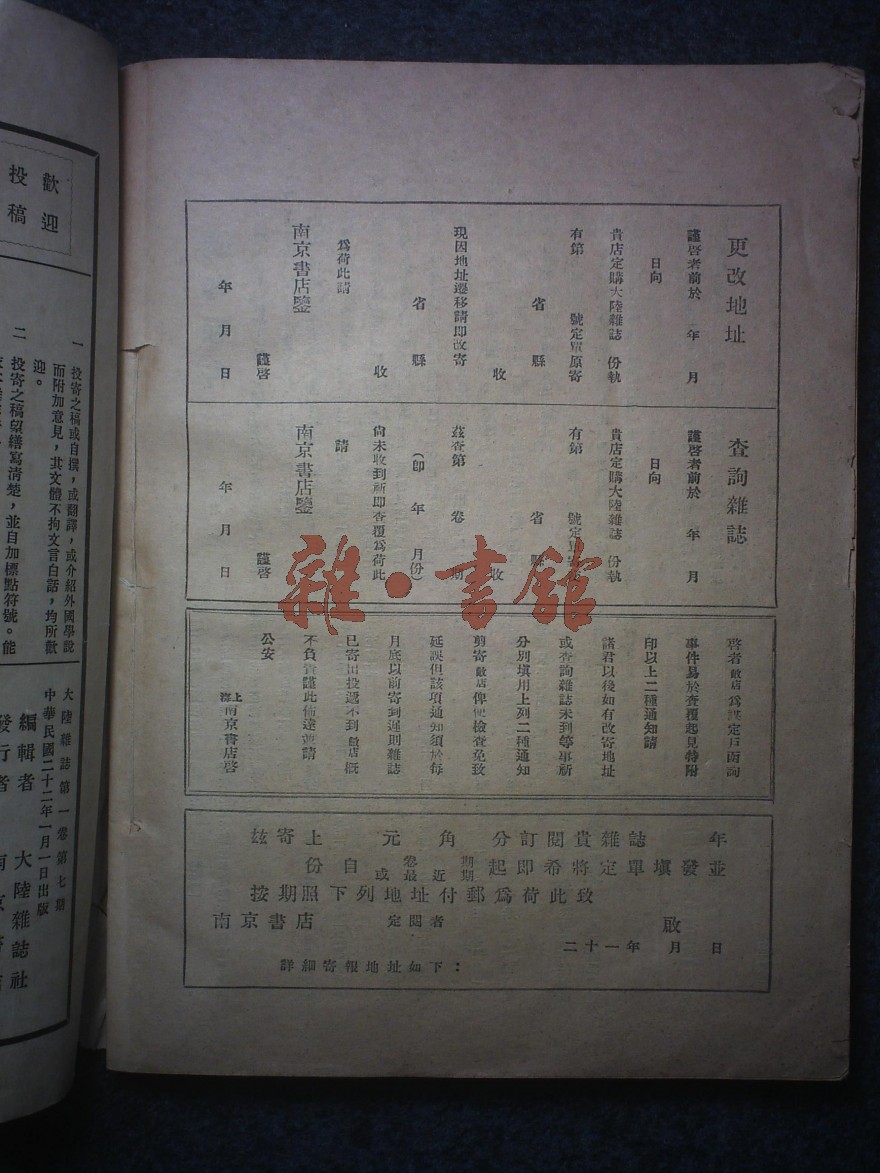 更改地址
謹啓者前於　年　月
日向
貴店定購大陸雜誌　份執
有第　號定單原寄
省　縣
收
現因地址遷移請即改寄
省　縣
收
爲荷此請
南京書店鑒
謹啓
年　月　日
查詢雜誌
謹啓者前於　年　月
日向
貴店定購大陸雜誌　份執
有第　號定單寄交
省　縣
收
茲查第　卷　期
(卽　年　月份)
尙未收到祈即查覆爲荷此
請
南京書店鑒
謹啓
年　月　日
啓者敝店爲謀定戶函詢
事件易於查覆起見特附
印以上二種通知請
諸君以後如有改寄地址
或查詢雜誌未到等事祈
分別填用上列二種通知
剪寄敝店俾便檢查免致
延誤但該項通知須於每
月底以前寄到遲則雜誌
已寄出投遞不到敝店概
不負責謹此佈達並請
公安
上海南京書店啓
玆寄上　元　角　分訂閱貴雜誌　年
份自　卷　期或最近期起即希將定單填發並
按期照下列地址付郵爲荷此致
南京書店　定閱者　啟
二十一年　月　日
詳細寄報地址如下：
歡迎
投稿
一　投寄之稿或自撰，或翻譯，或介紹外國學說
而附加意見，其文體不拘文言白話，均所歡
迎。
二　投寄之稿望繕寫清楚，並自加標點符號。能
大陸雜誌第一卷第七期
中華民國二十二年一月一日出版
編輯者　大陸雜誌社
發行者　南京書店
雜·書館